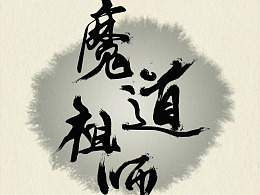 魔道祖师